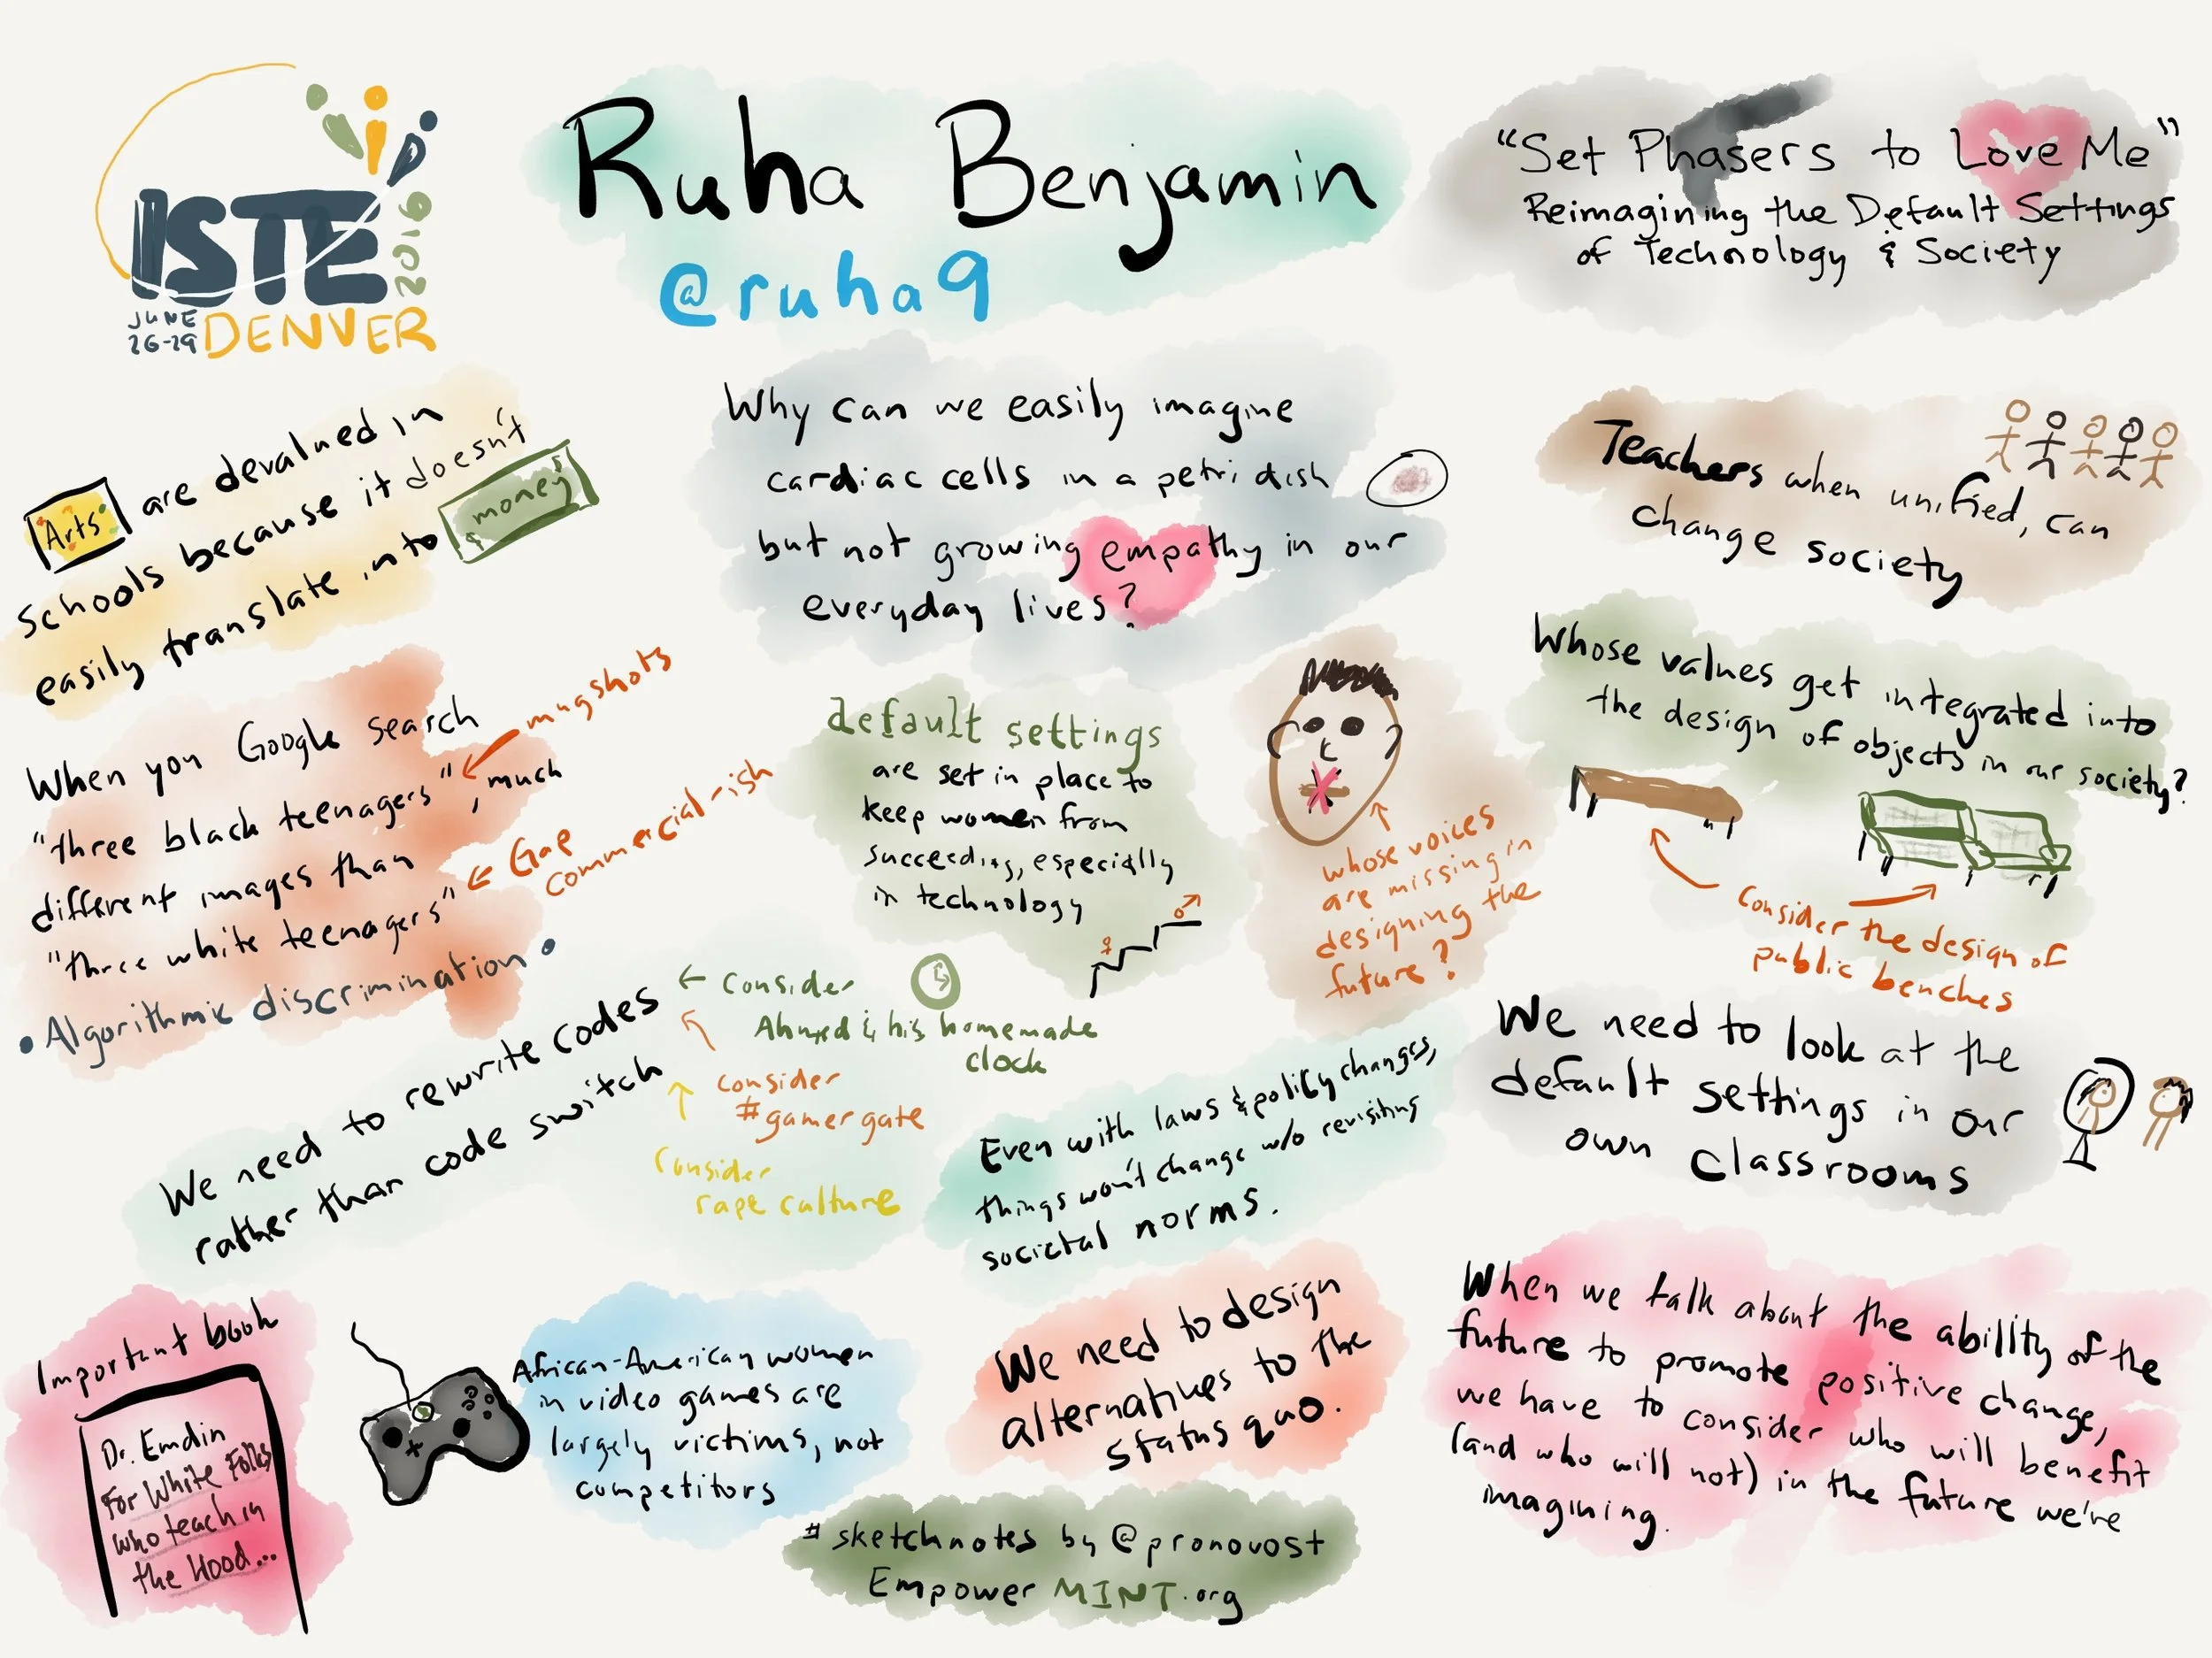 ISTE
2016
JUNE
26-29
DENVER
Ruha Benjamin
@ruha9
"Set Phasers to Love Me"
Reimagining the Default Settings
of Technology & Society
Arts are devalued in
schools because it doesn't
easily translate into money
Why can we easily imagine
cardiac cells in a petri dish
but not growing empathy in our
everyday lives?
Teachers when unified, can
change society
When you Google search
"three black teenagers", much
different images than
"three white teenagers"
mugshots
Gap
commercial-ish
• Algorithmic discrimination •
default settings
are set in place to
keep women from
succeeding, especially
in technology
whose voices
are missing in
designing the
future?
Whose values get integrated into
the design of objects in our society?
Consider the design of
public benches
We need to rewrite codes
rather than code switch
Consider
Ahmed & his homemade
clock
Consider
#gamergate
Consider
rape culture
Even with laws & policy changes,
things won't change w/o revisiting
societal norms.
We need to look at the
default settings in our
own classrooms
Important book
Dr. Emdin
For White Folks
who teach in
the Hood...
African-American women
in video games are
largely victims, not
competitors
We need to design
alternatives to the
status quo.
When we talk about the ability of the
future to promote positive change,
we have to consider who will benefit
(and who will not) in the future we're
imagining.
#sketchnotes by @pronovost
EmpowerMINT.org